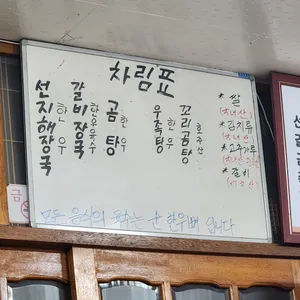 차림표
선지해장국 한우
갈비장국 한우육수
곰탕 한우
우족탕 한우
꼬리곰탕 호주산
* 쌀
(국내산)
* 김치류
(국내산)
* 고추가루
* 갈비
모든 음식의 육수는 한우뼈 입니다
금